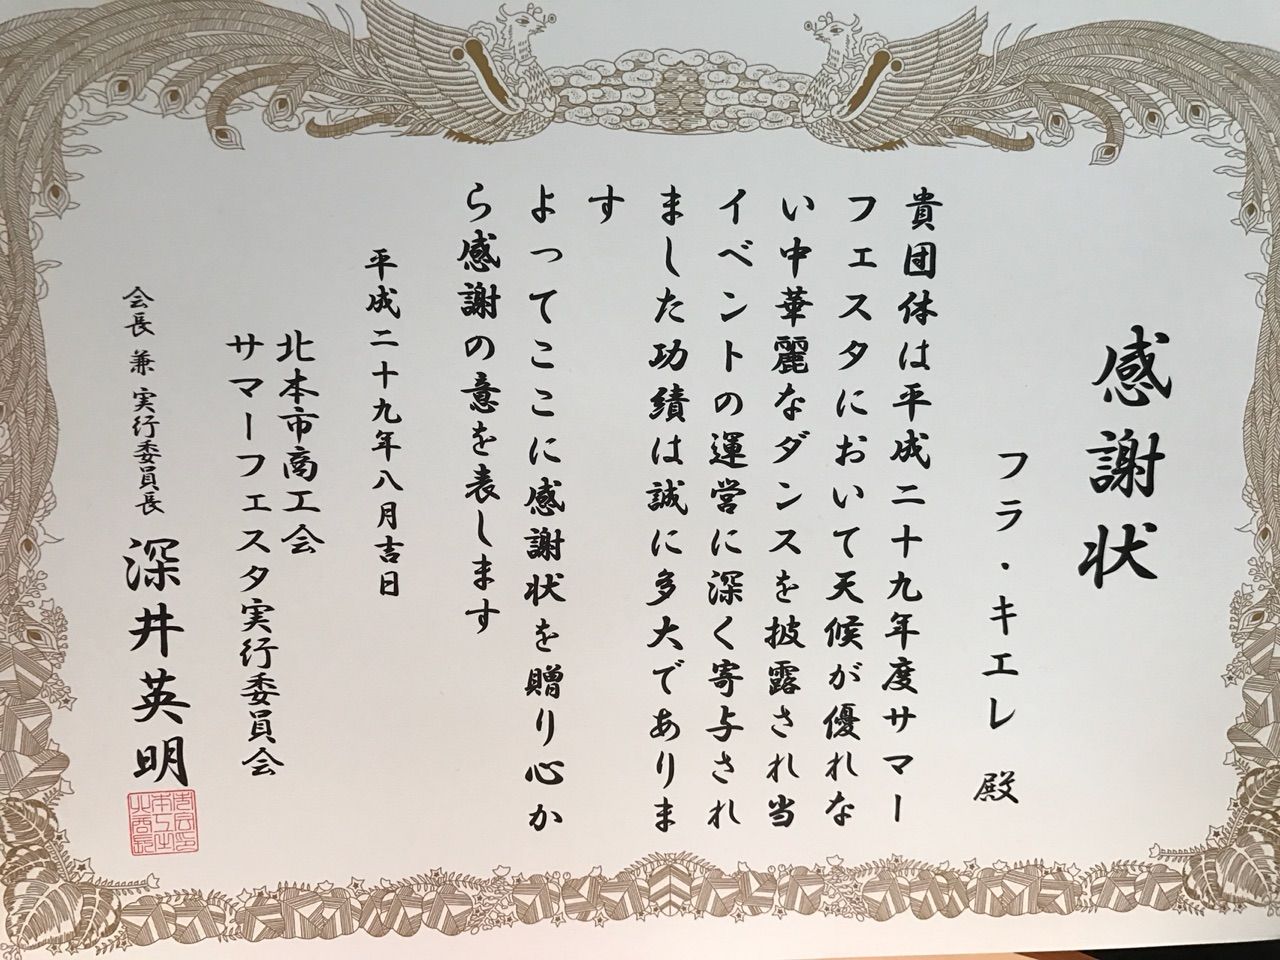 感謝状
フラ・キエレ 殿
貴団体は平成二十九年度サマー
フェスタにおいて天候が優れな
い中華麗なダンスを披露され当
イベントの運営に深く寄与され
ました功績は誠に多大でありま
す
よってここに感謝状を贈り心か
ら感謝の意を表します
平成二十九年八月吉日
北本市商工会
サマーフェスタ実行委員会
会長 兼 実行委員長 深井英明